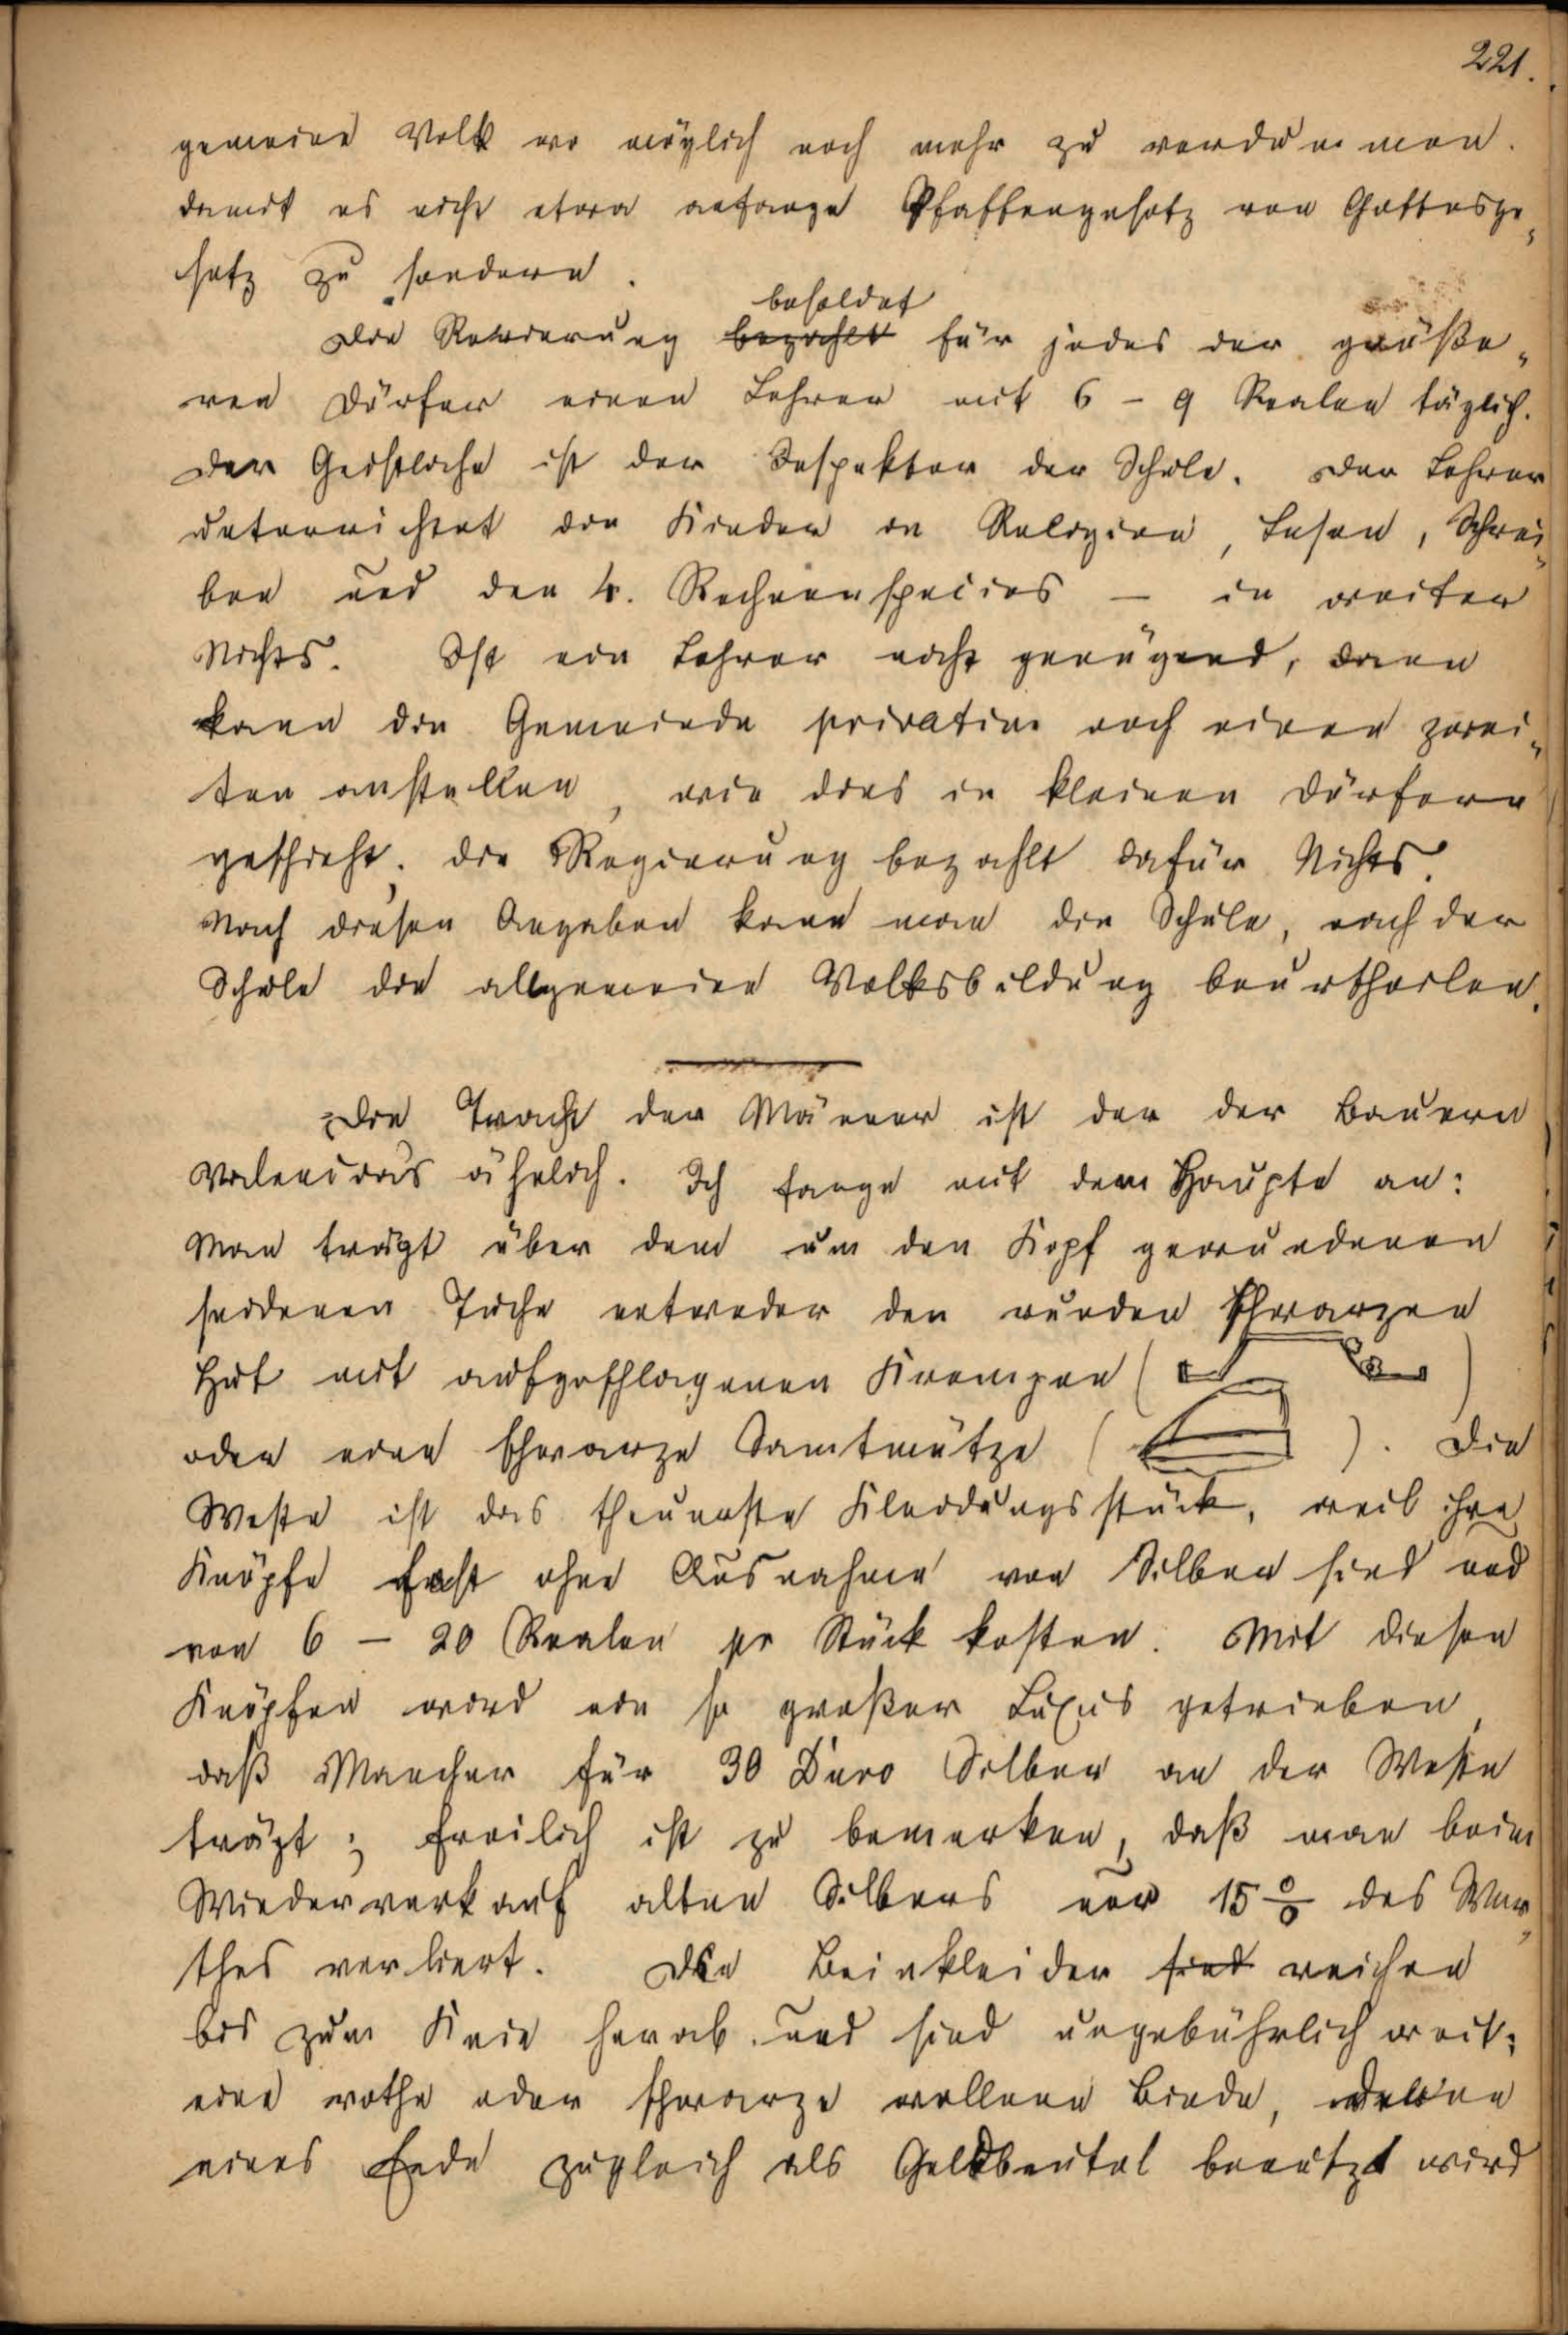 221.
gemeine Volk wo möglich noch mehr zu verdummen.
damit es nicht etwa anfange Pfaffengesetz von Gottesge-
setz zu sondern.
besoldet
Die Regierung bezahlt für jedes der größe-
ren Dörfer einen Lehrer mit 6 - 9 Realen täglich.
Der Geistliche ist der Inspektor der Schule. Der Lehrer
unterrichtet die Kinder in Religion, Lesen, Schrei-
ben und den 4. Rechenspecies — in weiter
Nichts. Ist ein Lehrer nicht genügend, dann
kann die Gemeinde privatim noch einen zwei-
ten anstellen, wie dies in kleinen Dörfern
geschieht. die Regierung bezahlt dafür Nichts.
Nach diesen Angaben kann man die Schule, nach der
Schule die allgemeine Volksbildung beurtheilen.
Die Tracht der Männer ist der der Bauern
Valencias ähnlich. Ich fange mit dem Haupte an:
Man trägt über dem um den Kopf gewundenen
seidenen Tuche entweder den runden schwarzen
Hut mit aufgeschlagenen Krempen ( )
oder eine schwarze Samtmütze ( ). Die
Weste ist das theuerste Kleidungsstück, weil ihre
Knöpfe fast ohne Ausnahme von Silber sind und
von 6 — 20 Realen pr Stück kosten. Mit diesen
Knöpfen wird ein so großer Luxus getrieben,
daß Mancher für 30 Duro Silber an der Weste
trägt; freilich ist zu bemerken, daß man beim
Wiederverkauf alten Silbers nur 15 % des Wer-
thes verliert. Die Beinkleider sind reichen
bis zum Knie herab und sind ungebührlich weit;
eine rothe oder schwarze wollene Binde, deren
eines Ende zugleich als Geldbeutel benutzt wird